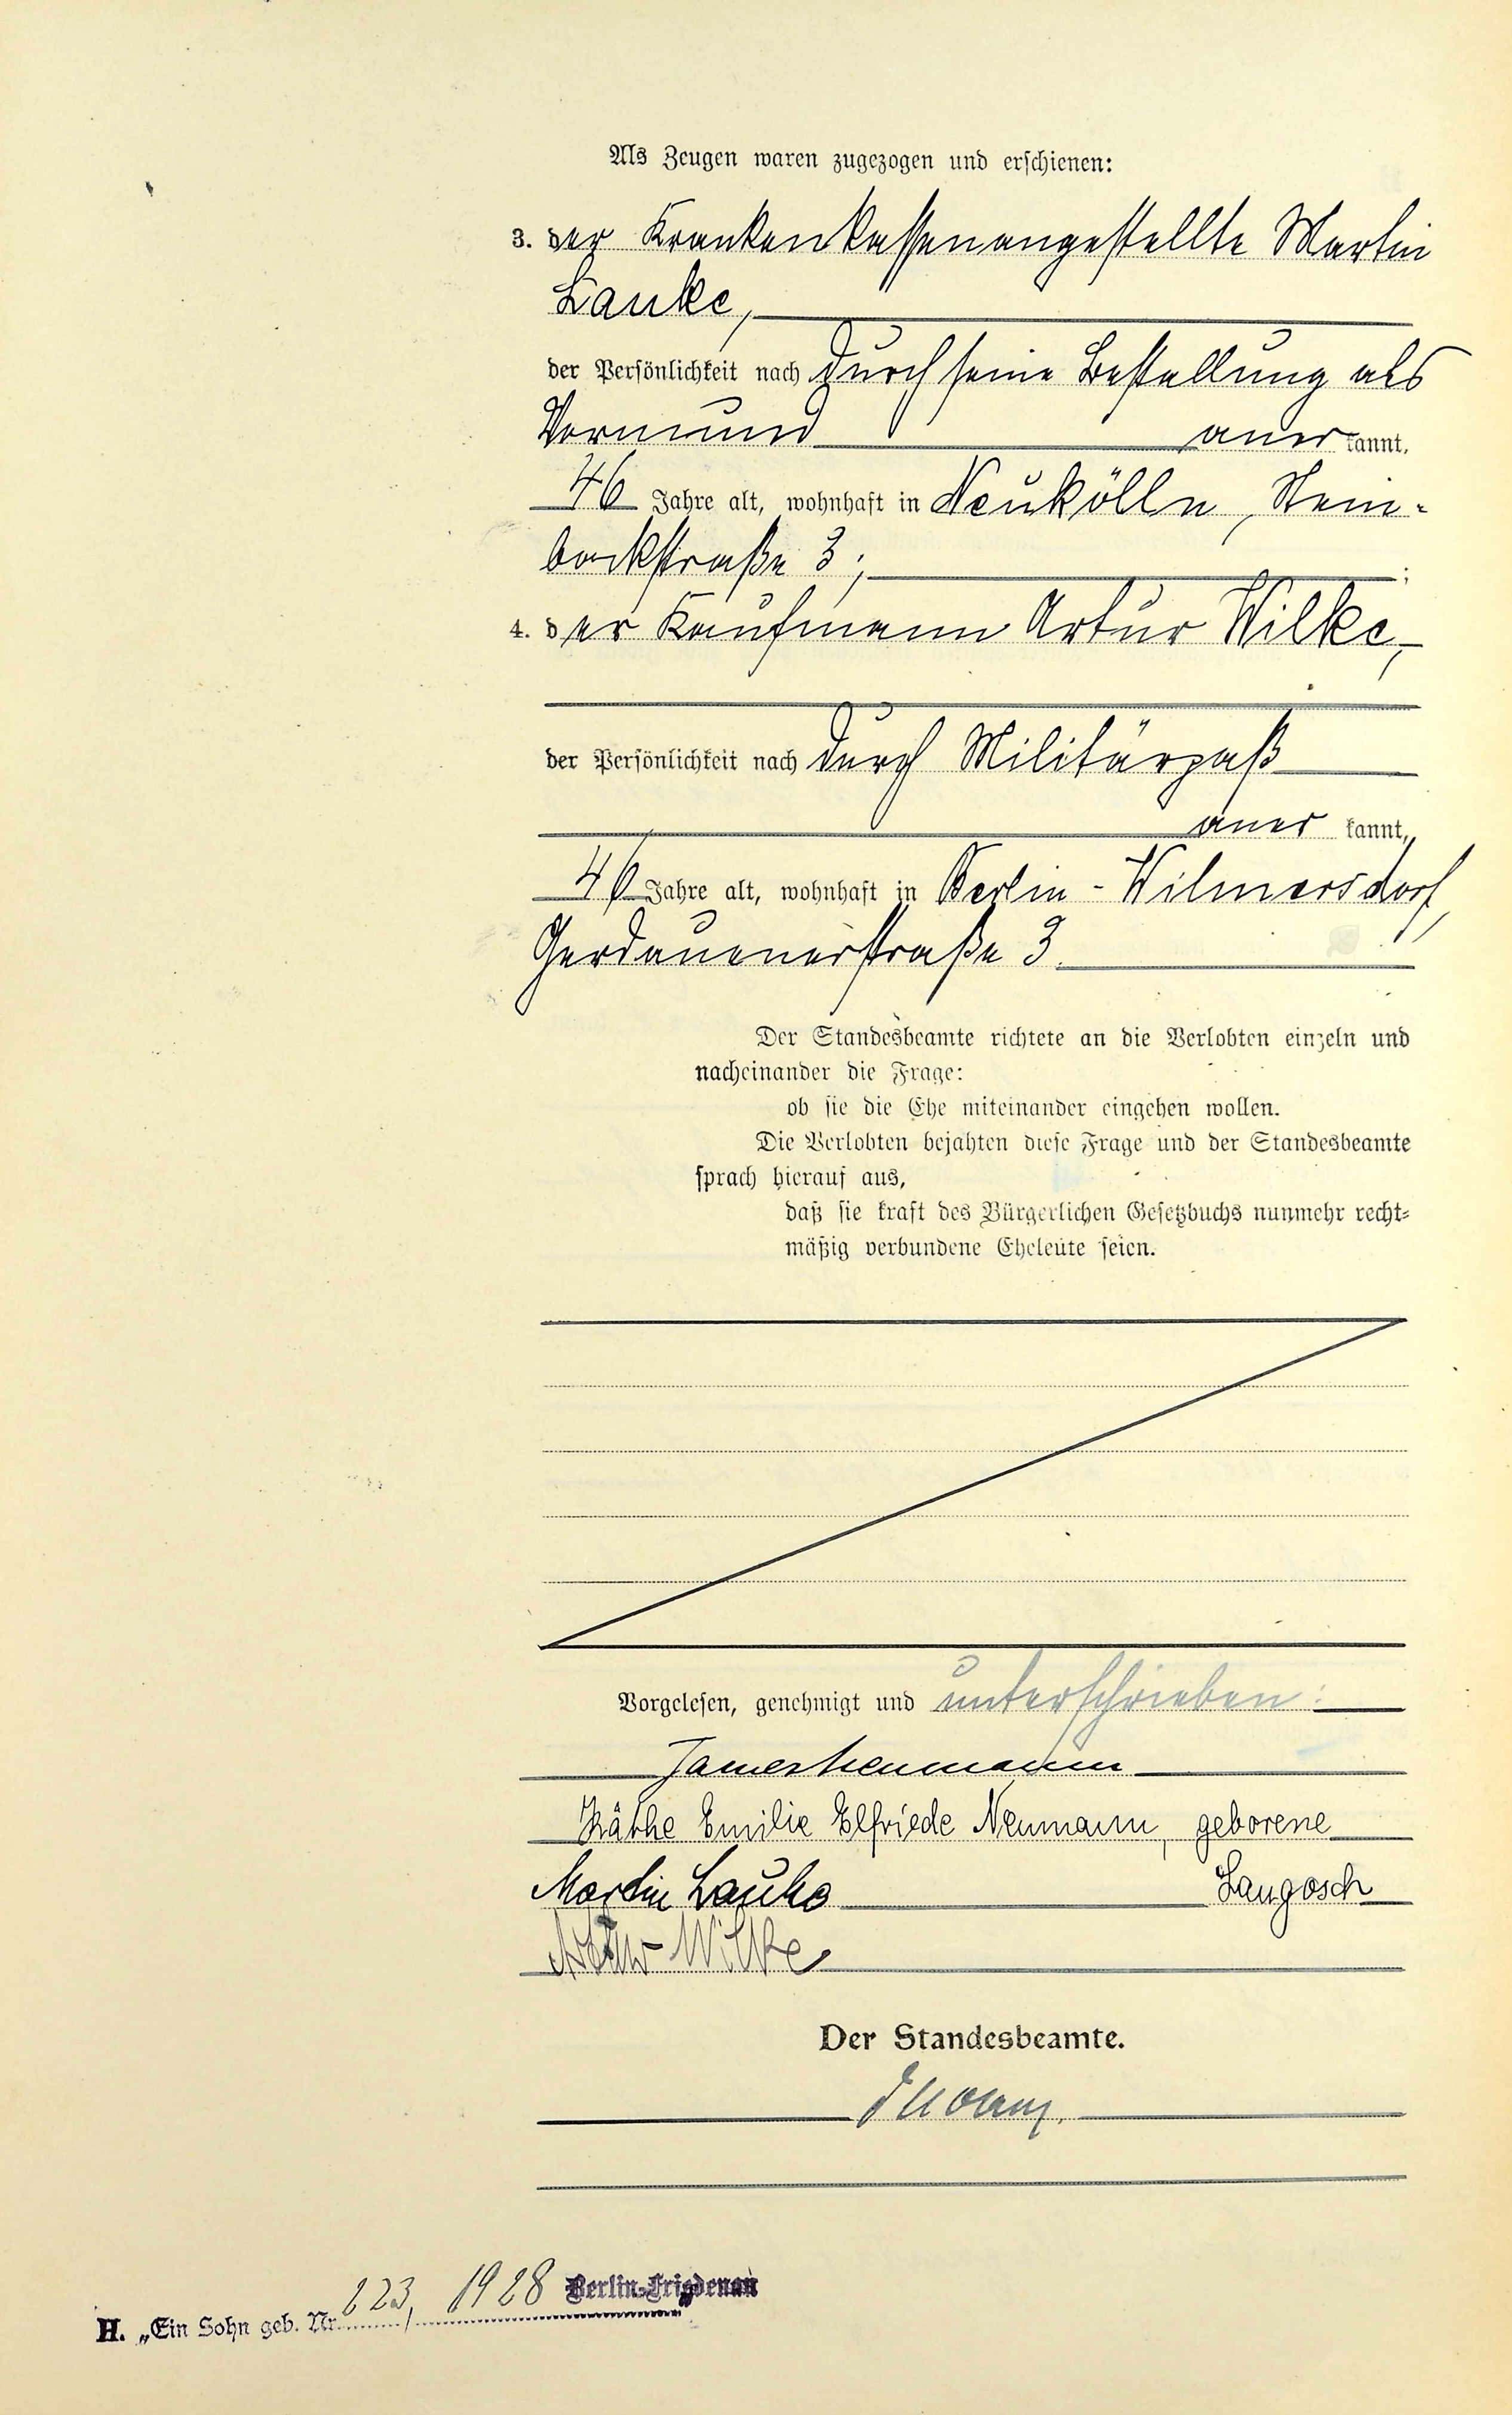 Als Zeugen waren zugezogen und erschienen:
3. der Krankenkassenangestellte Martin
Lauke,
der Persönlichkeit nach durch seine Bestallung als
Vormund anerkannt,
46 Jahre alt, wohnhaft in Neukölln, Stein-
bockstraße 3;
4. der Kaufmann Artur Wilke,
der Persönlichkeit nach durch Militärpaß
anerkannt,
46 Jahre alt, wohnhaft in Berlin-Wilmersdorf,
Gerdauenerstraße 3.
Der Standesbeamte richtete an die Verlobten einzeln und
nacheinander die Frage:
ob sie die Ehe miteinander eingehen wollen.
Die Verlobten bejahten diese Frage und der Standesbeamte
sprach hierauf aus,
daß sie kraft des Bürgerlichen Gesetzbuchs nunmehr recht-
mäßig verbundene Eheleute seien.
Vorgelesen, genehmigt und unterschrieben:
James Neumann
Käthe Emilie Elfriede Neumann, geborene
Martin Lauke Langosch
Artur Wilke
Der Standesbeamte.
H. „Ein Sohn geb. Nr. 223/1928 Berlin-Friedenau"